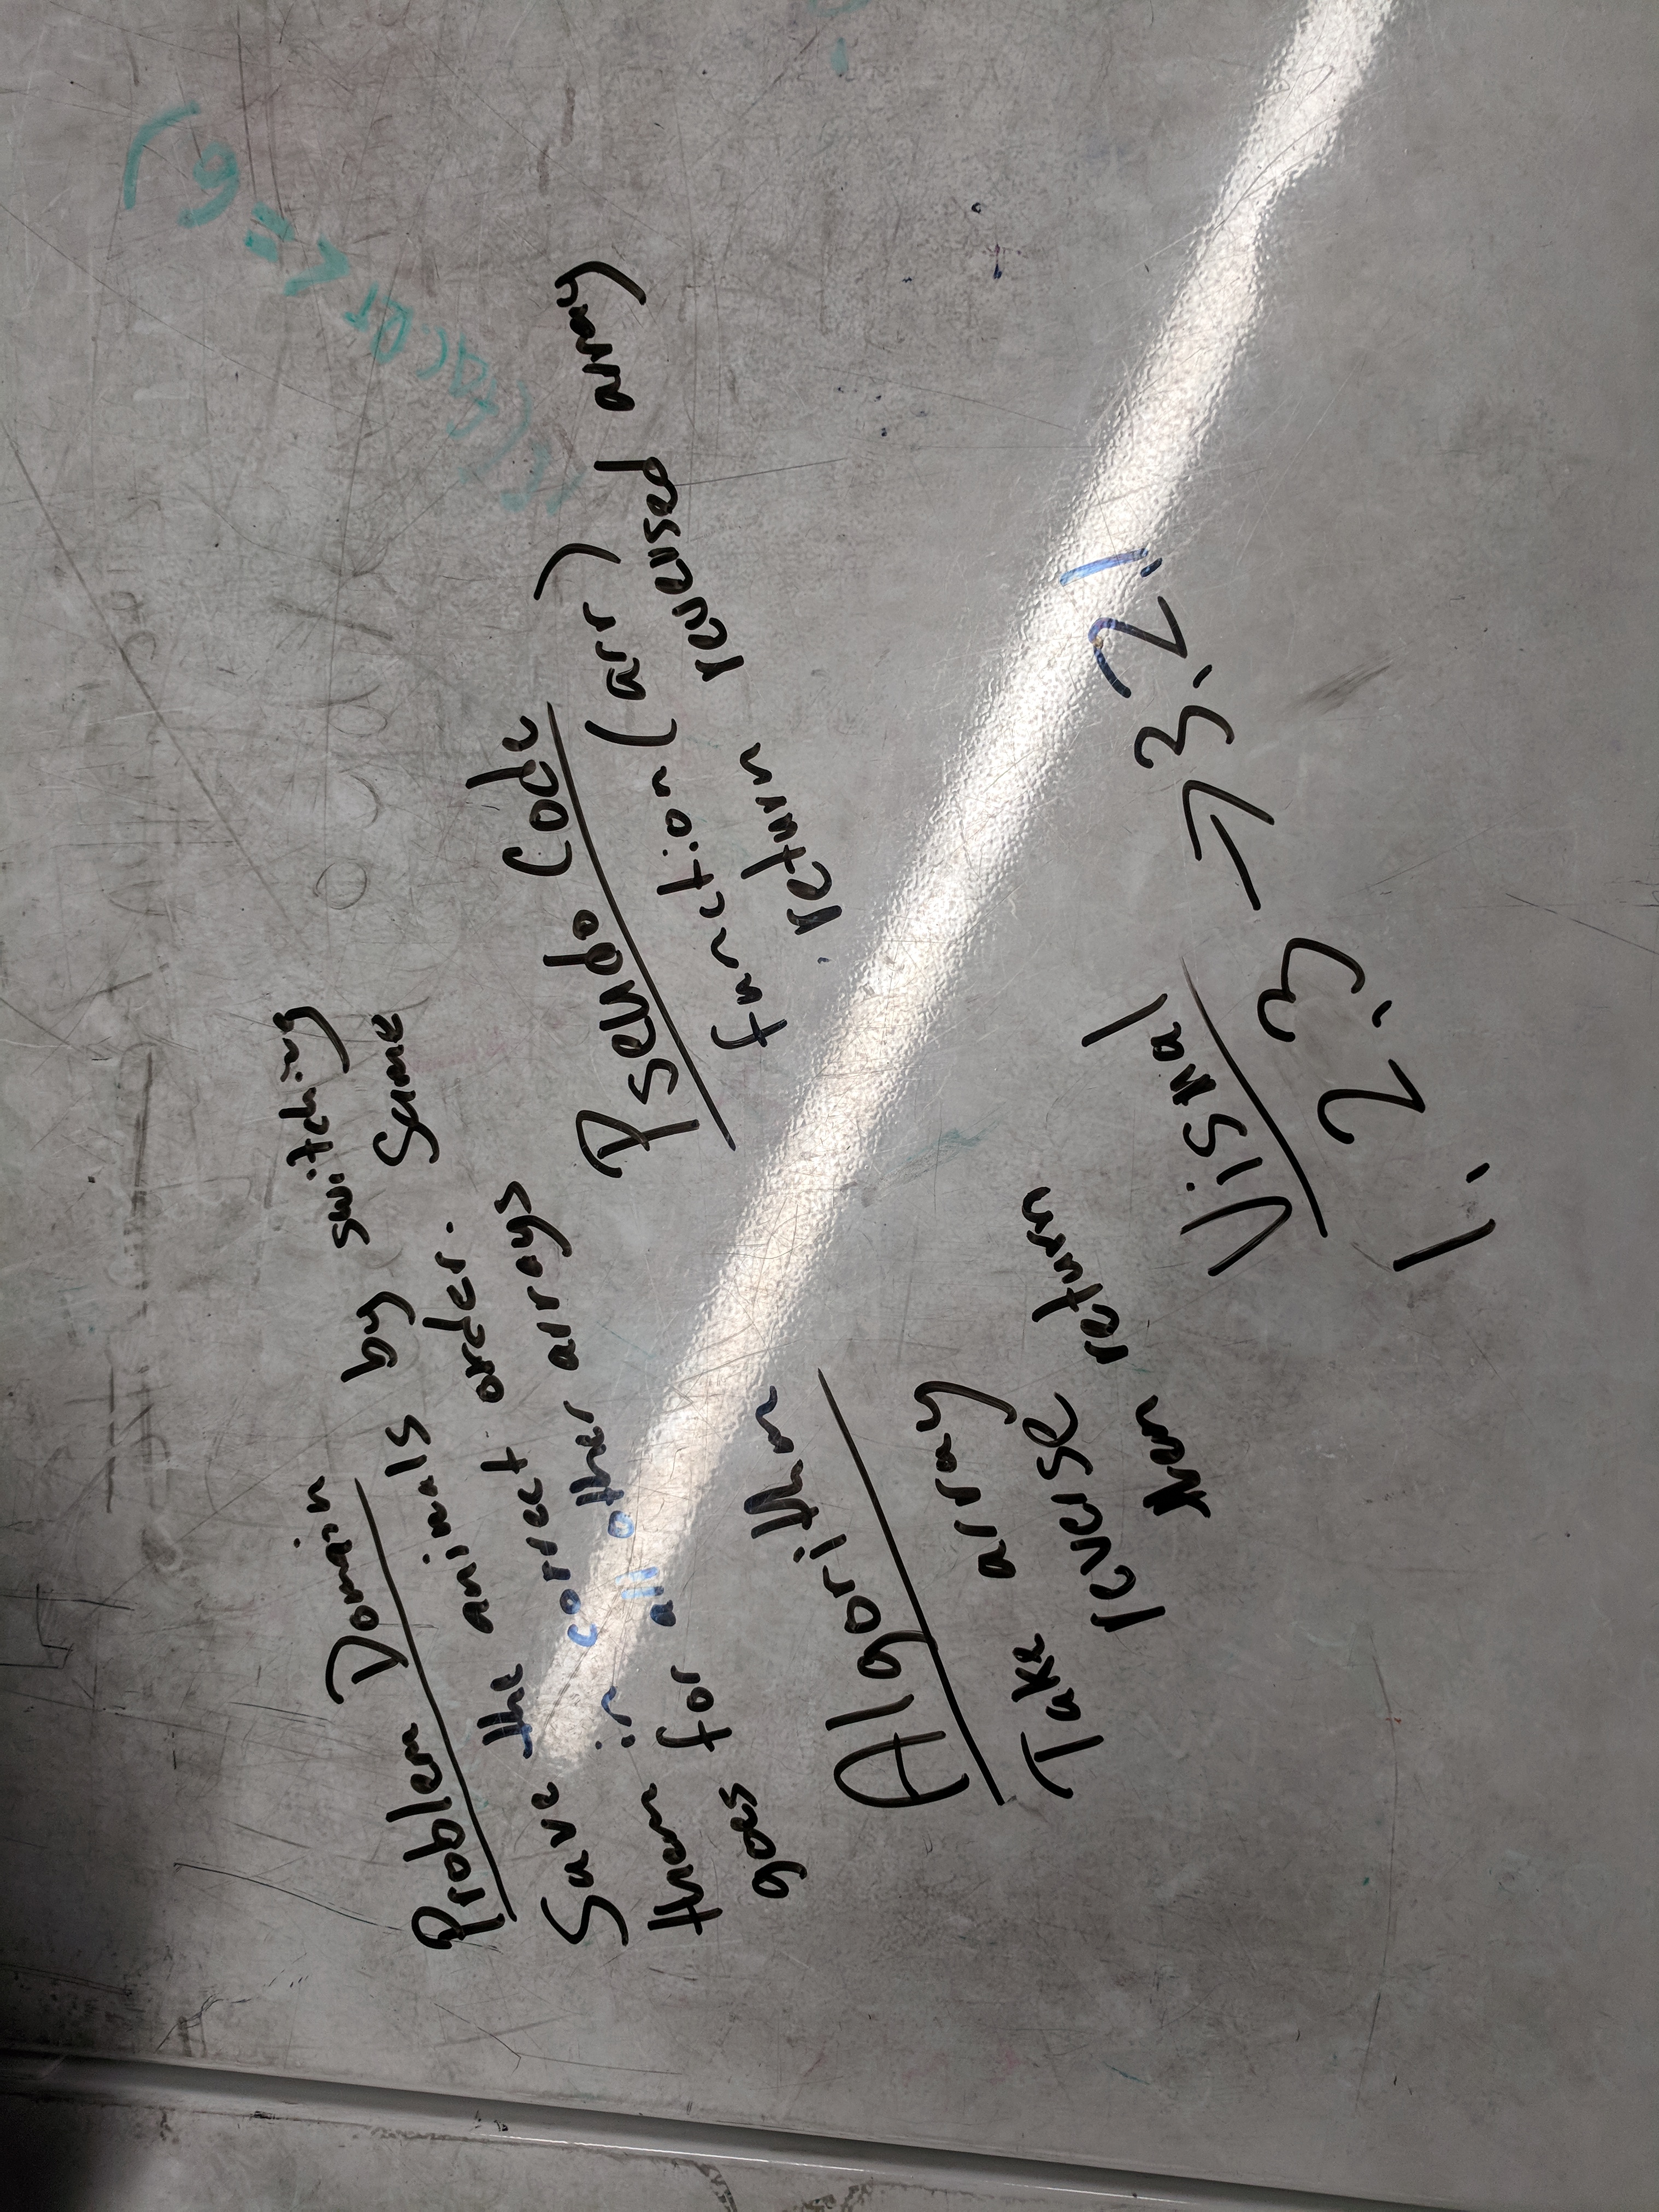 Problem Domain
Save the animals by switching
them in correct order. Same
goes for all other arrays
Algorithm
Take array
reverse
then return
Pseudo Code
function (arr)
return reversed array
Visual
1. 2. 3 → 3. 2. 1.